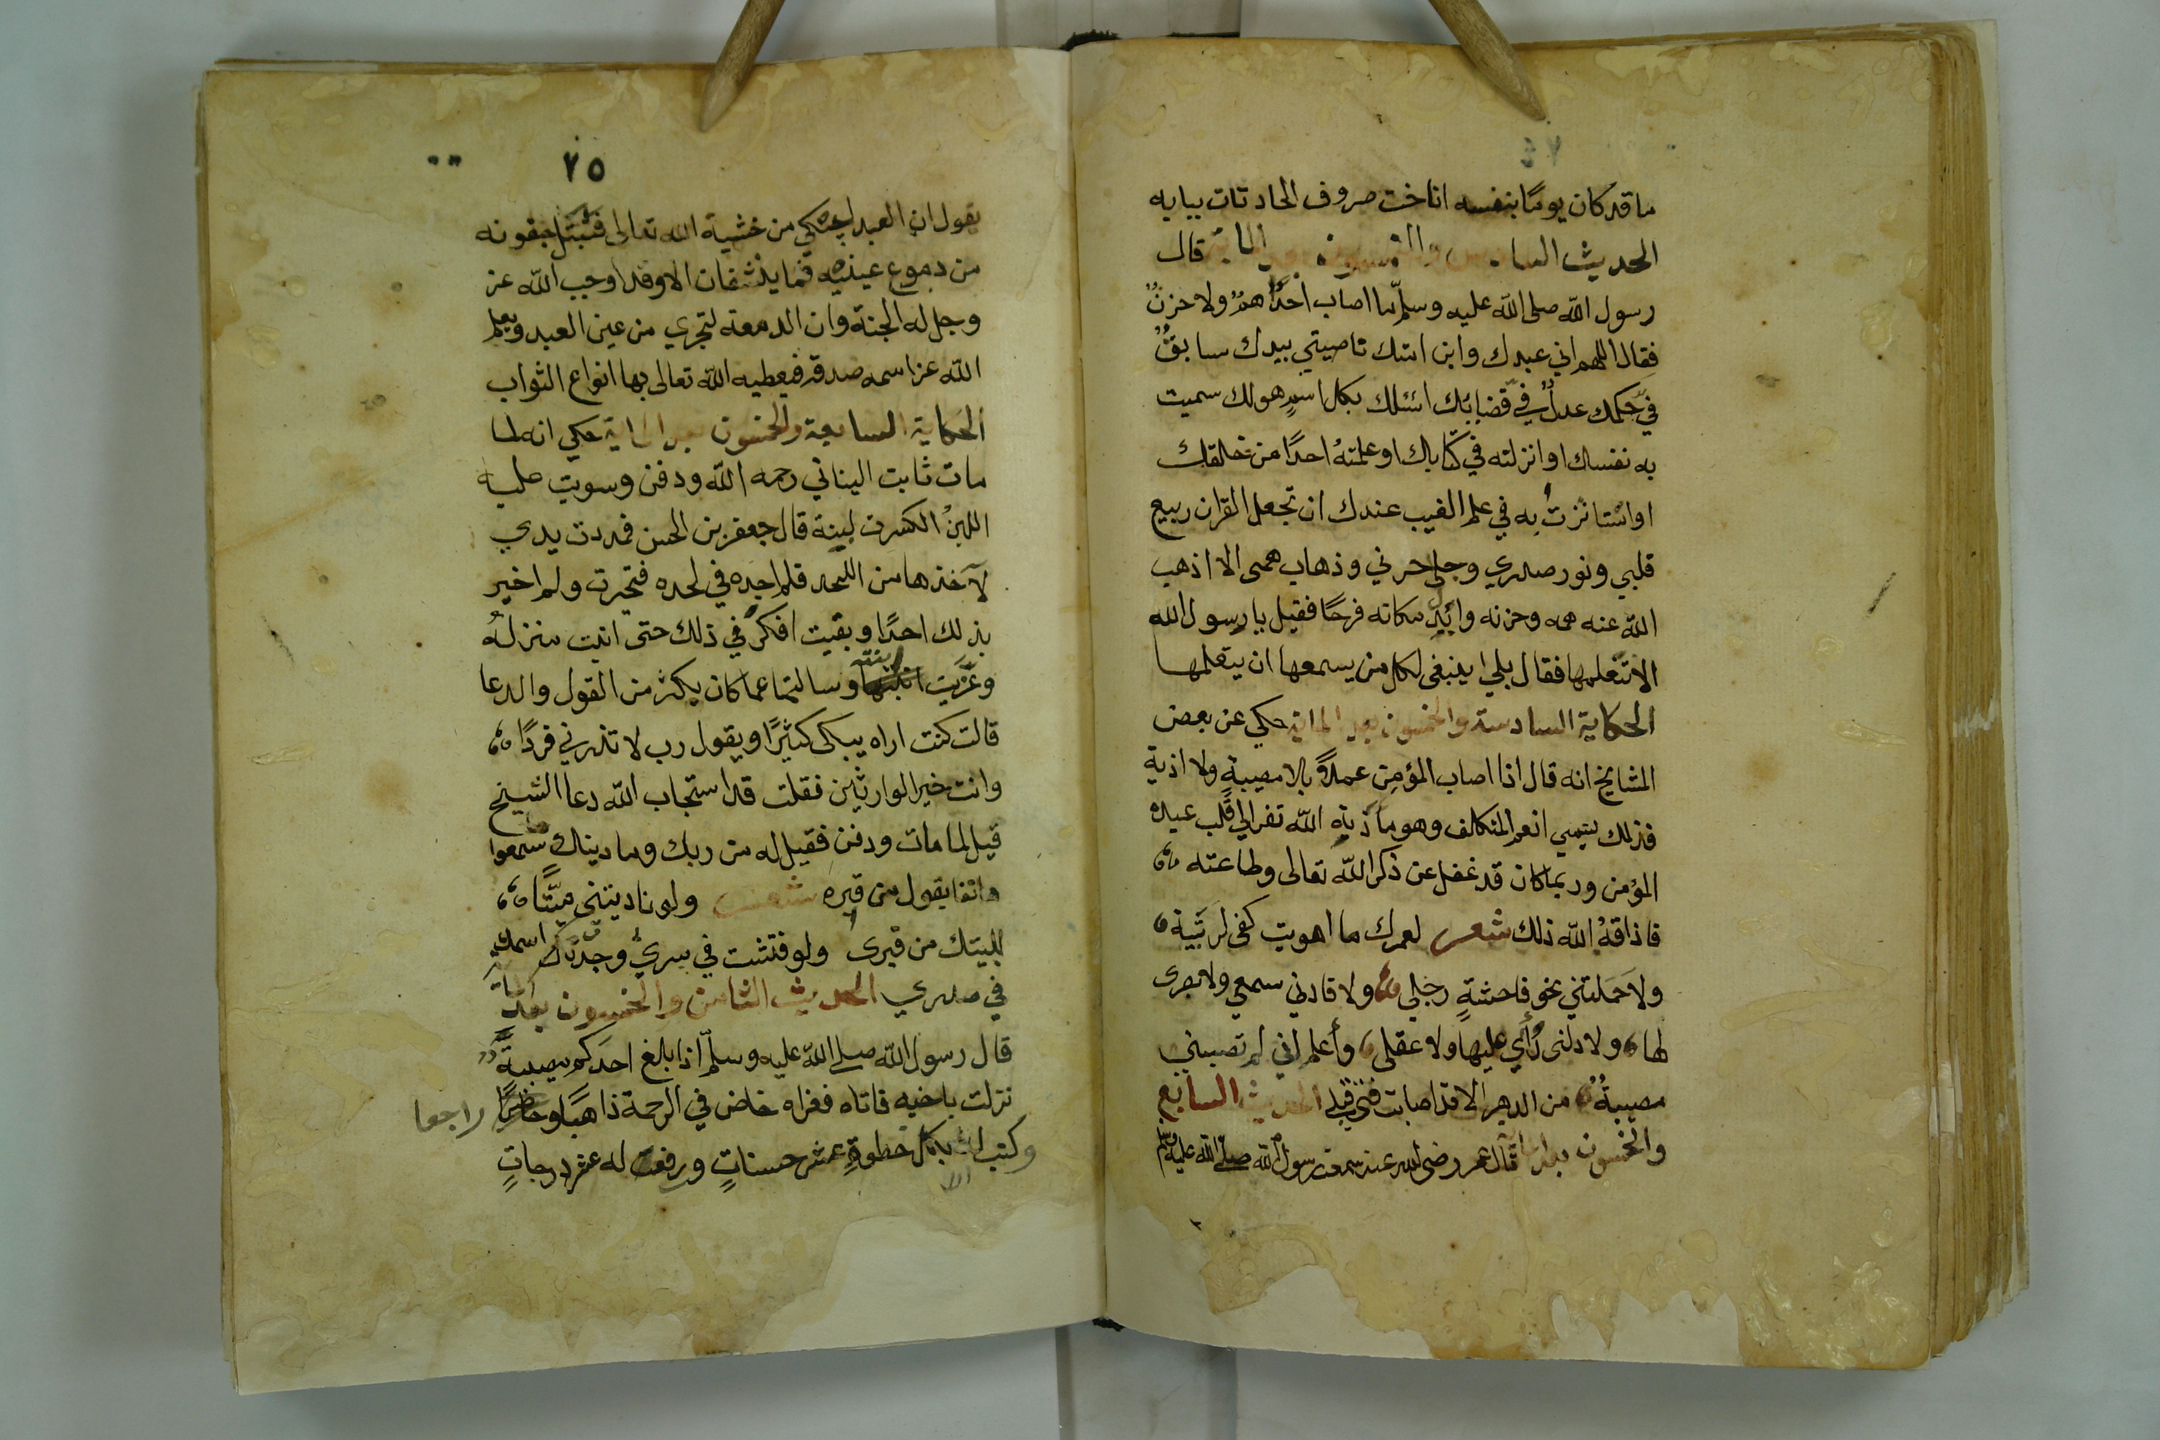 ما قد كان يومًا بنفسه اناخت صروف الحادثات ببابه
الحديث السادس والخمسون بعد الماية قال
رسول الله صلى الله عليه وسلم ما اصاب احدًا همٌ ولا حزنٌ
فقال اللهم اني عبدك وابن امتك ناصيتي بيدك سابقٌ
في حكمك عدلٌ في قضايئك اسئلك بكل اسمٍ هو لك سميت
به نفسك او انزلته في كتابك او علمته احدًا من خلقك
او استاثرت به في علم الغيب عندك ان تجعل القران ربيع
قلبي ونور صدري وجلى حزني وذهاب همى الا اذهب
الله عنه همه وحزنه وابدل مكانه فرحًا فقيل يا رسول الله
الا نتعلمها فقال بلى ينبغى لكل من يسمعها ان يتعلمها
الحكاية السادسة والخمسون بعد الماية حكي عن بعض
المشايخ انه قال اذا اصاب المؤمن بلا مصيبة ولا اذية
فذلك يسمى وهو الله قلب عبده
المؤمن وربما كان قد غفل عن ذكر الله تعالى وطاعته
فاذاقهُ الله ذلك شعر لعمرك ما اهويت كفى لريبة
ولا حملتني نحو فاحشةٍ رجلي ولا قادني سمعي ولا بصرى
لها ولا دلنى رأي عليها ولا عقلى وأعلم اني لم تصيبني
مصيبةٌ من الدهر الا قد اصابت فتى قبلي الحديث السابع
والخمسون بعد الماية قال عمر رضى الله عنه سمعت رسول الله صلى الله عليه وسلم
٢٥
يقول ان العبد ليبكي من خشية الله تعالى فتبتل جفونه
من دموع عينيه فما ينشفان الا وقد اوجب الله عز
وجل له الجنة وان الدمعة لتجري من عين العبد ويعلم
الله عز اسمه صدقه فيعطيه الله تعالى بها انواع الثواب
الحكاية السابعة والخمسون بعد الماية حكي انه لما
مات ثابت البناني رحمه الله ودفن وسويت عليه
اللبن انكسرت لبنة قال جعفر بن الحسن فمددت يدي
لآخذها من اللحد فلم اجده في لحده فتحيرت ولم اخبر
بذلك احدًا وبقيت افكر في ذلك حتى اتيت منزله
وعزّيت ابنته وسالتها عما كان يكثر من القول والدعا
قالت كنت اراه يبكى كثيرًا ويقول رب لا تذرني فردًا
وانت خير الوارثين فقلت قد استجاب الله دعا الشيخ
قيل لما مات ودفن فقيل له من ربك وما دينك سمعوا
هاتفا يقول من قبره شعر ولو ناديتنى ميّتًا
للبيتك من قبرى ولو فتشت في سريٌ وجدتك اسمك
في صدري الحديث الثامن والخمسون بعد الماية
قال رسول الله صلى الله عليه وسلم اذا بلغ احدكم مصيبةً
نزلت باخيه فاتاه فعزاه خاض في الرحمة ذاهبًا و راجعا
وكتب الله بكل خطوةٍ عشر حسناتٍ ورفعت له عشر درجاتٍ